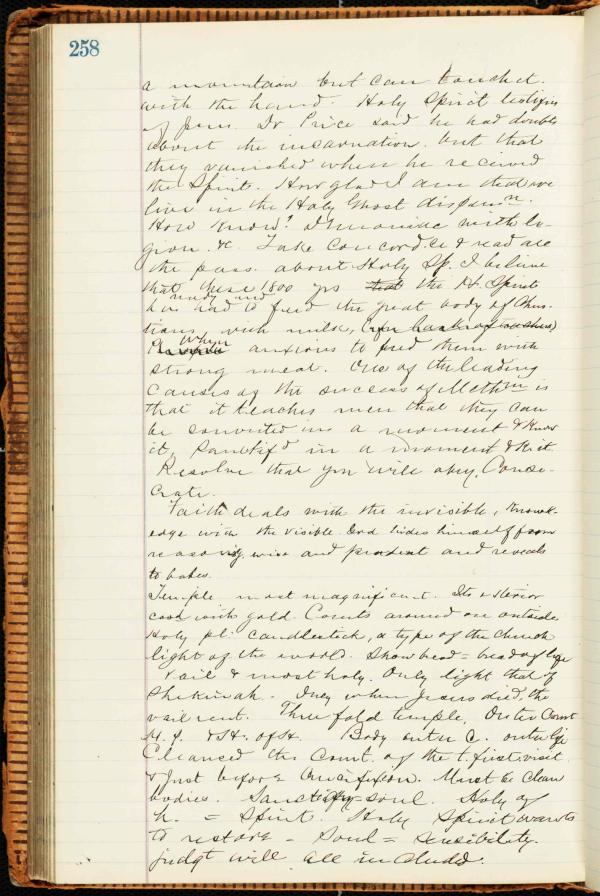 258
a mountain but can touch it
with the hand. Holy Spirit testifies
of Jesus. Dr Price said he had doubts
about the incarnation. but that
they vanished when he received
the Spirit. How glad I am that we
live in the Holy Ghost dispensn.
How know? Demoniac with le-
gion. &c. Take Concordce & read all
the pass. about Holy Sp. I believe
that these 1800 yrs that the H. Spirit
has had to feed the great body of Chris-
tians with milk,
When anxious to feed them with
strong meat. One of the leading
causes of the success of Methm is
that it teaches men that they can
be converted in a moment & know
it, Sanctifd in a moment & k it.
Resolve that you will obey. Conse-
crate.
Faith deals with the invisible, knowl-
edge with the visible. God hides himself from
reasoning, wise and prudent and reveals
to babes.
Temple most magnificent. Its exterior
cood with gold. Courts around on outside
Holy pl. candlestick, a type of the church
light of the world. Show bread = bread of life
Vail & most holy. Only light that of
Shekinah. when Jesus died, the
vail rent. Three fold temple, Outer Court
H. p. & H. of H. Body outer c. outer life
Cleansed the Court of the t. first visit
& just before Crucifixion. Must be clean
bodies. Sanctify = soul. Holy of
h. = Spirit. Holy Spirit wants
to restore - Soul = sensibility.
judgt will all included.